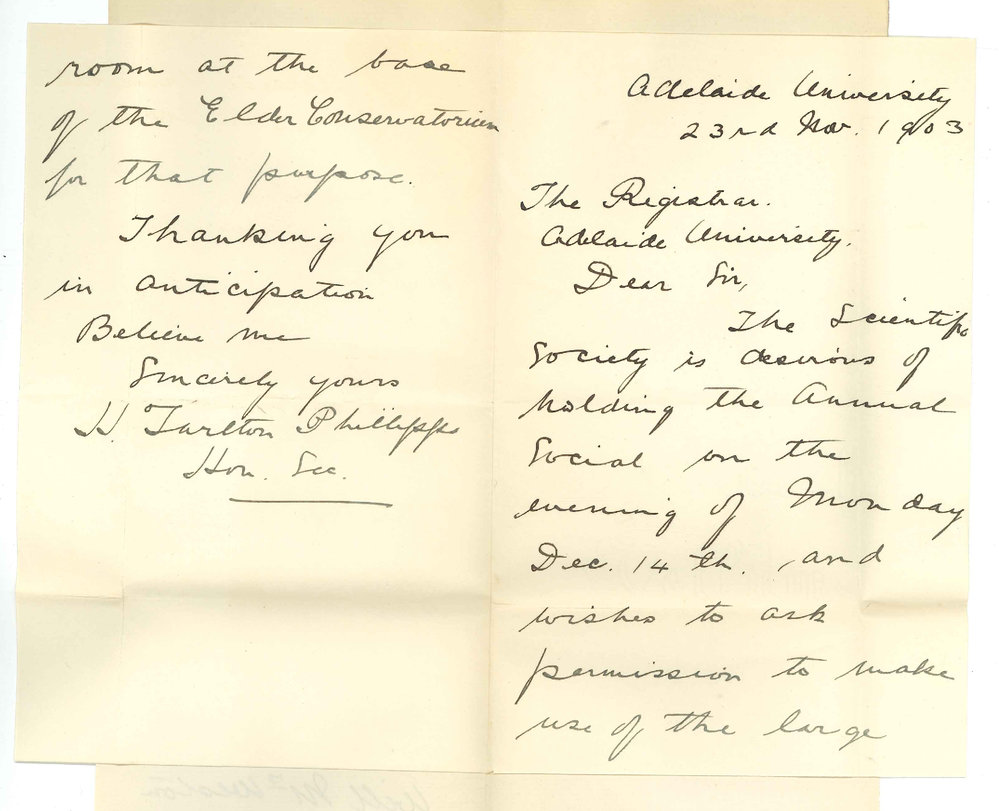 Adelaide University
23rd Nov. 1903
The Registrar.
Adelaide University.
Dear Sir,
The Scientific
Society is desirous of
holding the Annual
Social on the
evening of Monday
Dec. 14th. , and
wishes to ask
permission to make
use of the large
room at the base
of the Elder Conservatorium
for that purpose.
Thanking you
in anticipation
Believe me
Sincerely yours
H. Tarlton Phillipps
Hon. Sec.